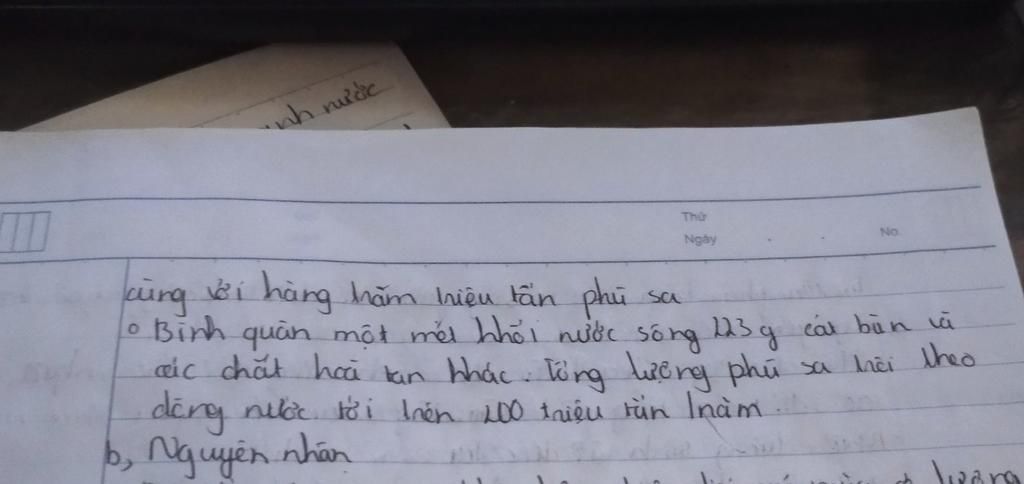 ình nước
Thứ
Ngày . . No.
cùng với hàng trăm triệu tấn phù sa
o Bình quân một mét khối nước sông 223 g cát bùn và
các chất hoà tan khác. Tổng lượng phù sa trôi theo
dòng nước tới trên 200 triệu tấn / năm.
b, Nguyên nhân
lượng